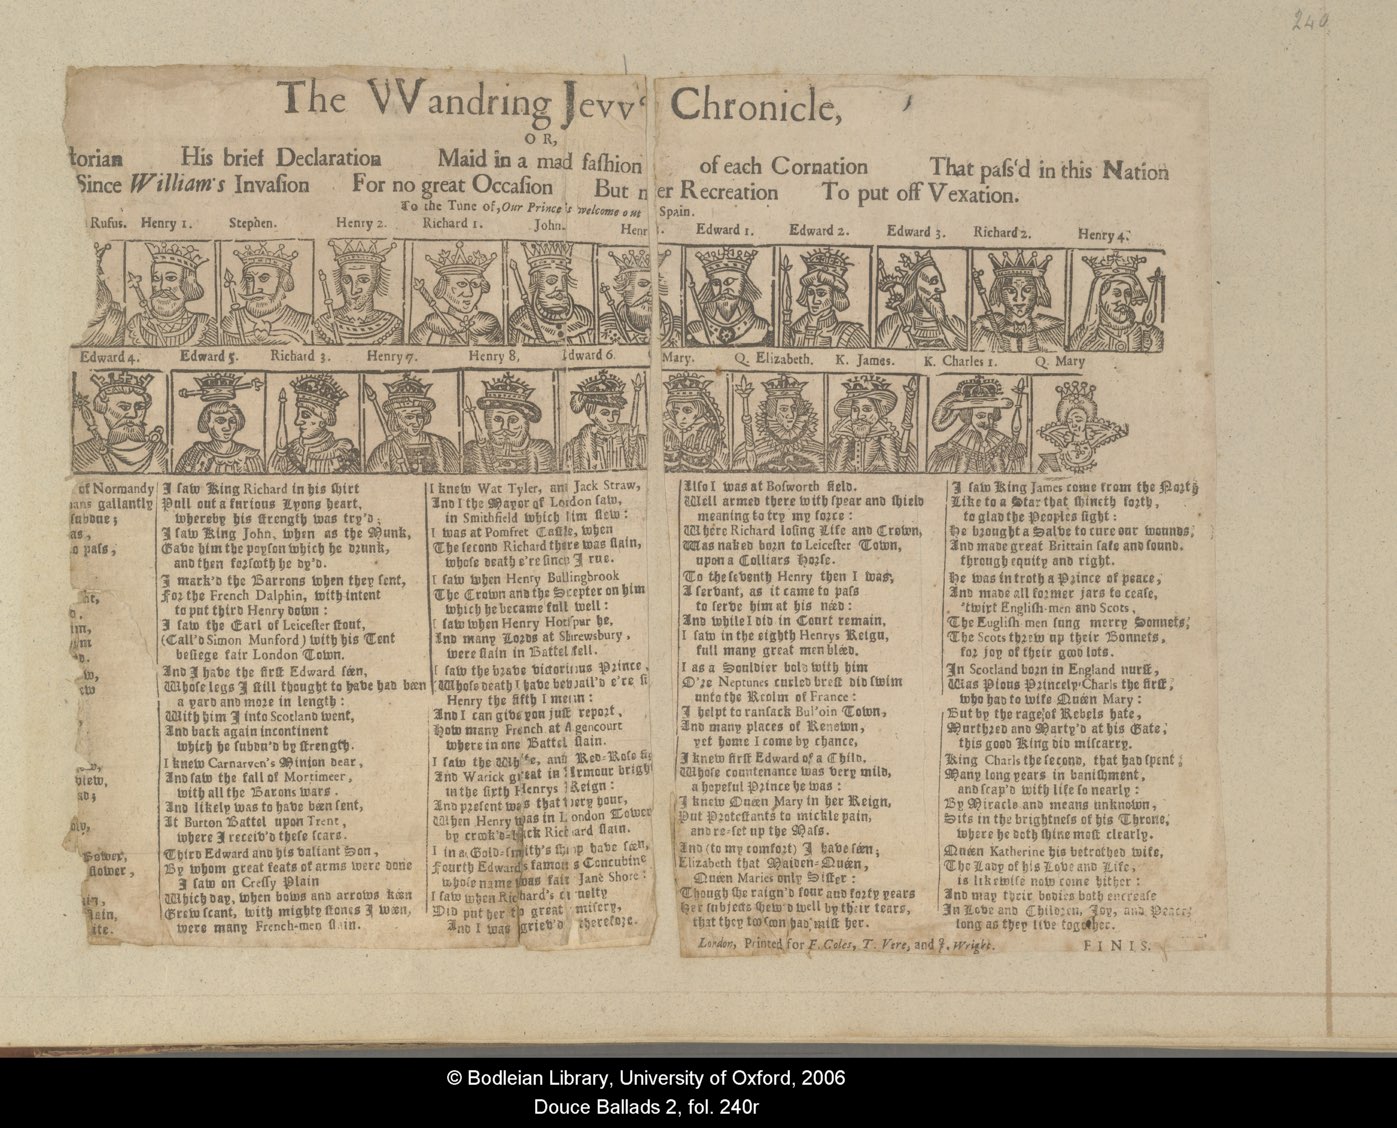 240
The VVandring Jevv's Chronicle,
OR,
torian His brief Declaration Maid in a mad fashion of each Cornation That pass'd in this Nation
Since William's Invasion For no great Occasion But er Recreation To put off Vexation.
To the Tune of, Our Prince's welcome out Spain.
Rufus. Henry 1. Stephen. Henry 2. Richard 1. John. Henr Edward 1. Edward 2. Edward 3. Richard 2. Henry 4.
Edward 4. Edward 5. Richard 3. Henry 7. Henry 8, Edward 6. Mary. Q. Elizabeth. K. James. K. Charles 1. Q. Mary
of Normandy
ans gallantly
subdue;
as,
o pass,
him,
view,
Power,
flower,
slain,
ite.
I saw King Richard in his shirt
Pull out a furious Lyons heart,
whereby his strength was try'd;
I saw King John, when as the Munk,
Gave him the poyson which he drunk,
and then forsooth he dy'd.
I mark'd the Barrons when they sent,
For the French Dalphin, with intent
to put third Henry down:
I saw the Earl of Leicester stout,
(Call'd Simon Munford) with his Tent
besiege fair London Town.
And I have the first Edward seen,
Whose legs I still thought to have had been
a yard and more in length:
With him I into Scotland went,
And back again incontinent
which he subdu'd by strength.
I knew Carnarven's Minion dear,
And saw the fall of Mortimeer,
with all the Barons wars.
And likely was to have been sent,
At Burton Battel upon Trent,
where I receiv'd these scars.
Third Edward and his valiant Son,
By whom great feats of arms were done
I saw on Cressy Plain
Which day, when bows and arrows keen
Grew scant, with mighty stones I ween,
were many French-men slain.
I knew Wat Tyler, and Jack Straw,
And I the Mayor of London saw,
in Smithfield which him slew:
I was at Pomfret Castle, when
The second Richard there was slain,
whose death e're since I rue.
I saw when Henry Bullingbrook
The Crown and the Scepter on him
which he became full well:
I saw when Henry Hotspur he,
And many Lords at Shrewsbury,
were slain in Battel fell.
I saw the brave victorious Prince,
Whose death I have bewail'd e're si
Henry the fifth I mean:
And I can give you just report,
How many French at Agencourt
where in one Battel slain.
I saw the White, and Red-Rose
And Warick great in Armour brigh
in the sixth Henrys Reign:
And present was that very hour,
When Henry was in London Tower
by crook'd-back Richard slain.
I in a Gold-smith's shop have seen,
Fourth Edwards famous Concubine
whose name was fair Jane Shore:
I saw when Richard's cruelty
Did put her to great misery,
And I was griev'd therefore.
Also I was at Bosworth field.
Well armed there with spear and shield
meaning to try my force:
Where Richard losing Life and Crown,
Was naked born to Leicester Town,
upon a Colliars Horse.
To the seventh Henry then I was,
A servant, as it came to pass
to serve him at his need:
And while I did in Court remain,
I saw in the eighth Henrys Reign,
full many great men bleed.
I as a Souldier bold with him
O're Neptunes curled brest did swim
unto the Realm of France:
I helpt to ransack Bul'oin Town,
And many places of Renown,
yet home I come by chance,
I knew first Edward of a Child.
Whose countenance was very mild,
a hopeful Prince he was:
I knew Queen Mary in her Reign,
Put Protestants to mickle pain,
and re-set up the Mass.
And (to my comfort) I have seen;
Elizabeth that Maiden-Queen,
Queen Maries only Sister:
Though she raign'd four and forty years
Her subjects shew'd well by their tears,
that they too soon had mist her.
I saw King James come from the North
Like to a Star that shineth forth,
to glad the Peoples sight:
He brought a Salve to cure our wounds,
And made great Brittain safe and sound.
through equity and right.
He was in troth a Prince of peace,
And made all former jars to cease,
'twixt English-men and Scots,
The English men sung merry Sonnets,
The Scots threw up their Bonnets,
for joy of their good lots.
In Scotland born in England nurst,
Was Pious Princely Charls the first,
who had to wife Queen Mary:
But by the rage of Rebels hate,
Murthred and Marty'd at his Gate,
this good King did miscarry.
King Charls the second, that had spent,
Many long years in banishment,
and scap'd with life so nearly:
By Miracle and means unknown,
Sits in the brightness of his Throne,
where he doth shine most clearly.
Queen Katherine his betrothed wife,
The Lady of his Love and Life,
is likewise now come hither:
And may their bodies both encrease
In Love and Children, Joy, and Peace;
long as they live together.
London, Printed for F. Coles, T. Vere, and J. Wright.
FINIS.
© Bodleian Library, University of Oxford, 2006
Douce Ballads 2, fol. 240r